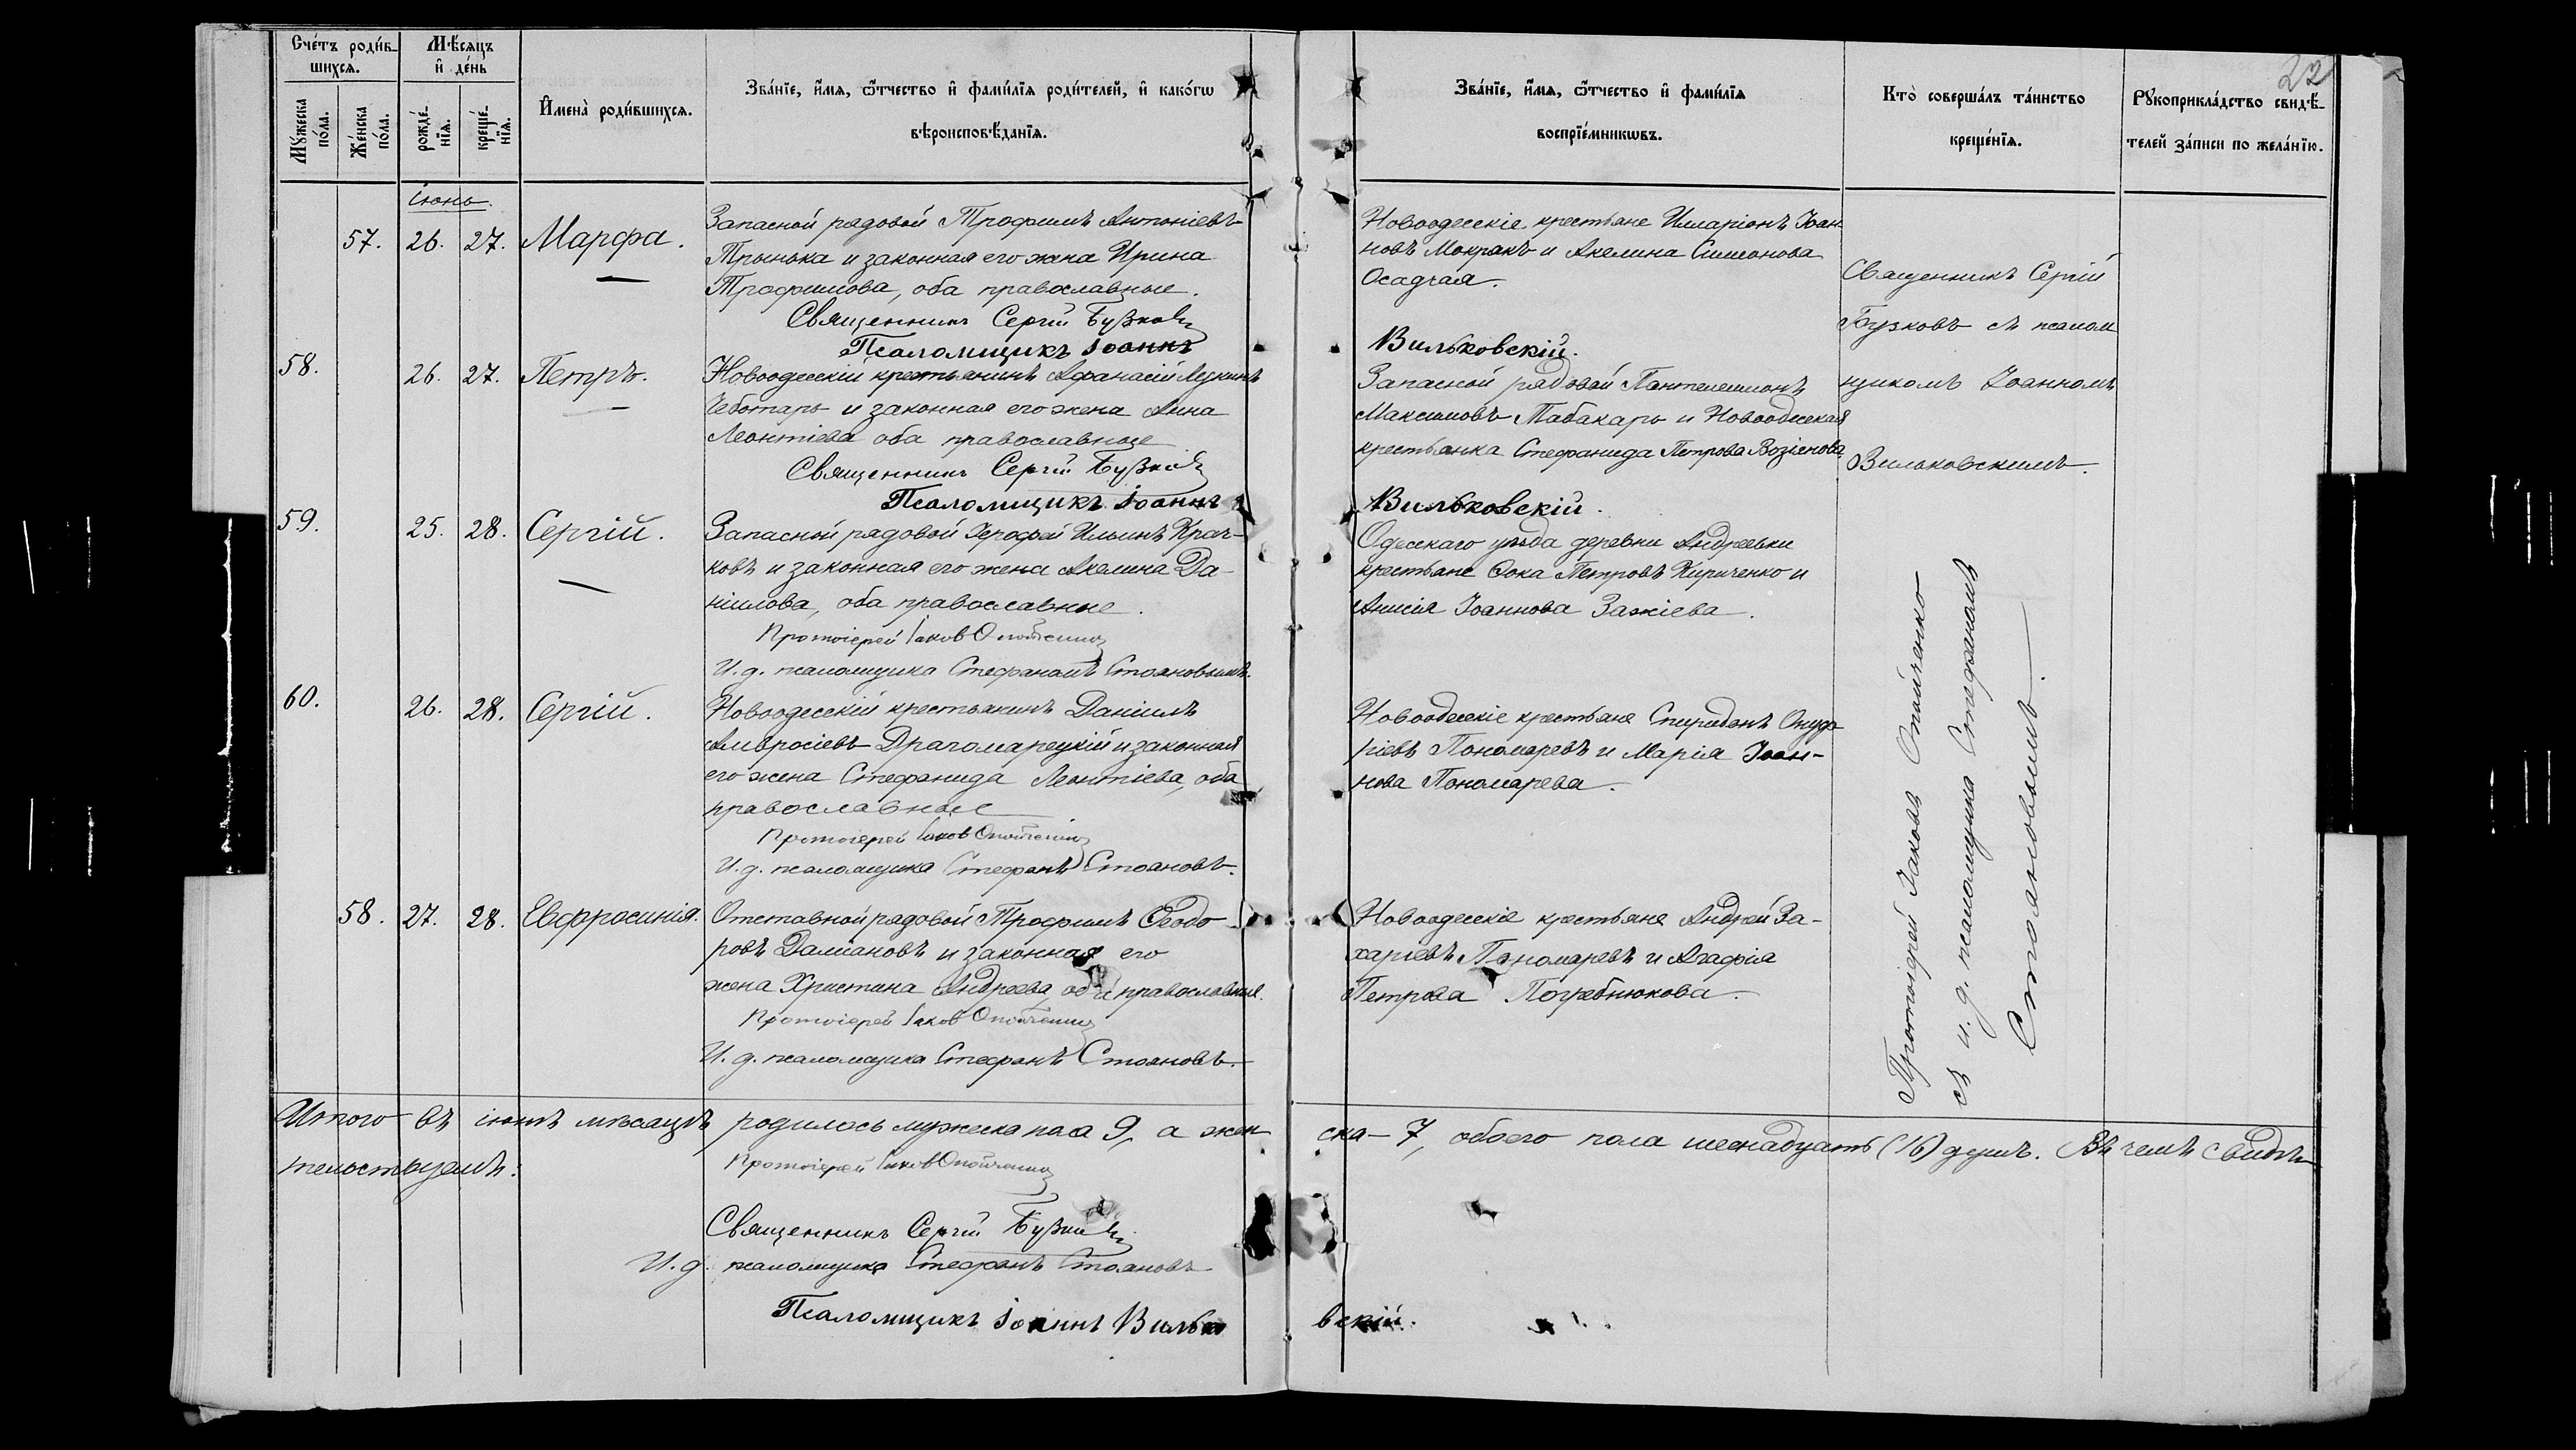 22
Сче́тъ роди́в-
шихсѧ.
Мѣ́сѧцъ
и҆ де́нь
Мꙋ́жеска
по́ла.
Же́нска
по́ла.
рожде́-
нїѧ.
креще́-
нїѧ.
И҆мена̀ роди́вшихсѧ.
Зва́нїе, и҆́мѧ, ѻ҆́тчество и҆ фами́лїѧ роди́телей, и҆ како́гѡ
вѣроисповѣ́данїѧ.
Зва́нїе, и҆́мѧ, ѻ҆́тчество и҆ фами́лїѧ
воспрїе́мникѡвъ.
Кто̀ соверша́лъ та́инство
креще́нїѧ.
Рꙋкоприкла́дство свидѣ́-
телей за́писи по жела́нїю.
іюнь.
57. 26. 27. Марфа.
Запасной рядовой Трофимъ Антоніевъ
Трынька и законная его жена Ирина
Трофимова, оба православные.
Священникъ Сергій Бузковъ
Псаломщикъ Іоаннъ Вильковскій.
Новоодесскіе крестьяне Илларіонъ Іоан-
новъ Мокракъ и Акелина Симеонова
Осадчая.
Священникъ Сергій
Бузковъ съ псалом
щикомъ Іоанномъ
Вильковскимъ.
58. 26. 27. Петръ.
Новоодесскій крестьянинъ Афанасій
Чеботарь и законная его жена Анна
Леонтіева оба православные
Священникъ Сергій Бузковъ
Псаломщикъ Іоаннъ Вильковскій.
Запасной рядовой Пантелеимонъ
Максимовъ Табакарь и Новоодесская
крестьянка Стефанида Петрова Возіянова
59. 25. 28. Сергій.
Запасной рядовой Іерофей Ильинъ Крач-
ковъ и законная его жена Акелина Да-
ніилова, оба православные.
Протоіерей Іаковъ Опатченко
И. д. псаломщика Стефаномъ Стояновымъ.
Одесскаго уѣзда деревни Андреевки
крестьяне Ѳока Петровъ Кириченко и
Анисія Іоаннова Зажіева.
60. 26. 28. Сергій.
Новоодесскій крестьянинъ Даніилъ
Амвросіевъ Драгомарецкій и законная
его жена Стефанида Леонтіева, оба
православные
Протоіерей Іаковъ Опатченко
И. д. псаломщика Стефанъ Стояновъ.
Новоодесскіе крестьяне Спиридонъ Онуф-
ріевъ Пономаревъ и Марія Іоан-
нова Пономарева.
58. 27. 28. Евфросинія.
Отставной рядовой Трофимъ Ѳеодо
ровъ Даміановъ и законная его
жена Христина Андреева, оба православные.
Протоіерей Іаковъ Опатченко
И. д. псаломщика Стефанъ Стояновъ.
Новоодесскіе крестьяне Андрей За-
харіевъ Пономаревъ и Агафія
Петрова Погребнюкова.
Протоіерей Іаковъ Опатченко
съ и. д. псаломщика Стефаномъ
Стояновымъ.
Итого въ іюнѣ мѣсяцѣ родилось мужеска пола 9, а жен
ска – 7, обоего пола шеснадцать (16) душъ. Въ чемъ свидѣ-
тельствуемъ:
Протоіерей Іаковъ Опатченко
Священникъ Сергій Бузковъ
И. д. псаломщика Стефанъ Стояновъ
Псаломщикъ Іоаннъ Вилько
вскій.